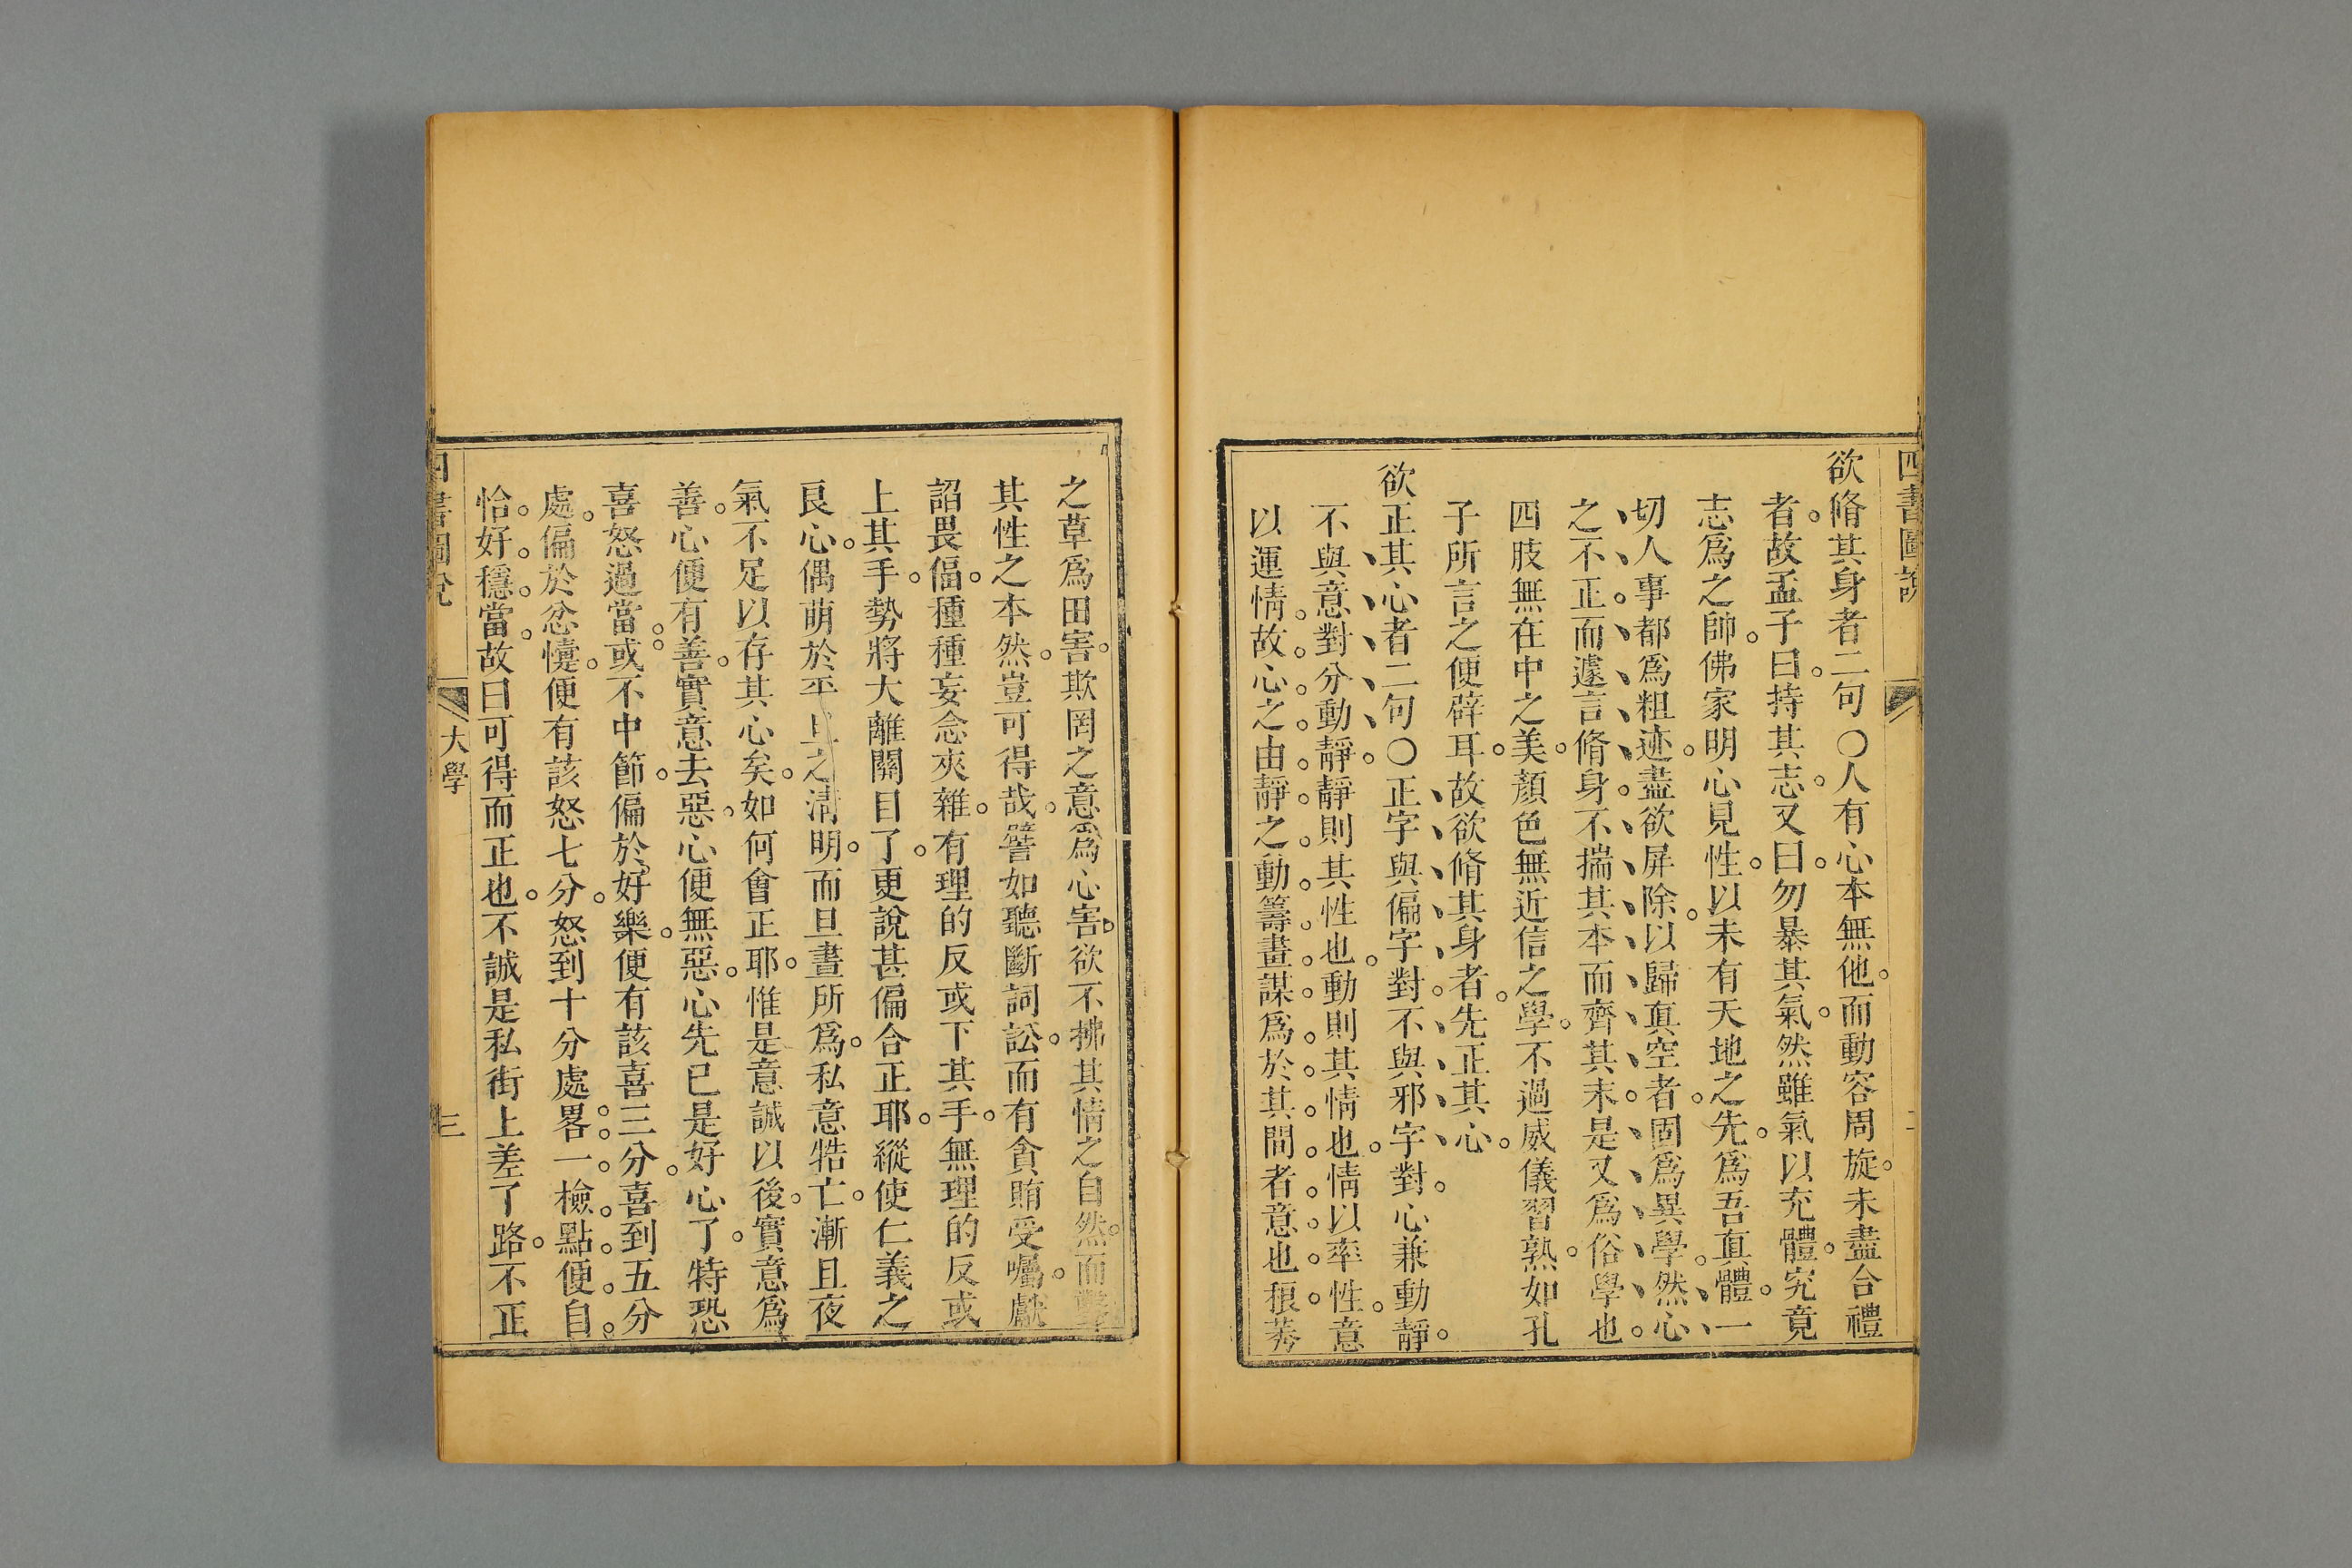 四書圖說
欲脩其身者二句〇人有心本無他而動容周旋未盡合禮
者故孟子曰持其志又曰勿暴其氣然雖氣以充體究竟
志爲之帥佛家明心見性以未有天地之先爲吾眞體一
切人事都爲粗迹盡欲屏除以歸眞空者固爲異學然心
之不正而遽言脩身不揣其本而齊其末是又爲俗學也
四肢無在中之美顏色無近信之學不過威儀習熟如孔
子所言之便辟耳故欲脩其身者先正其心
欲正其心者二句〇正字與偏字對不與邪字對心兼動靜
不與意對分動靜靜則其性也動則其情也情以率性意
以運情故心之由靜之動籌畫謀爲於其間者意也稂莠
之草爲田害欺罔之意爲心害欲不拂其情之自然而
其性之本然豈可得哉譬如聽斷詞訟而有貪賄受囑獻
諂畏偪種種妄念夾雜有理的反或下其手無理的反或
上其手勢將大離關目了更說甚偏合正耶縱使仁義之
良心偶萌於平旦之清明而旦晝所爲私意牿亡漸且夜
氣不足以存其心矣如何會正耶惟是意誠以後實意爲
善心便有善實意去惡心便無惡心先已是好心了特恐
喜怒過當或不中節偏於好樂便有該喜三分喜到五分
處偏於忿懥便有該怒七分怒到十分處畧一檢點便自
恰好穩當故曰可得而正也不誠是私街上差了路不正
四書圖說
大學
三